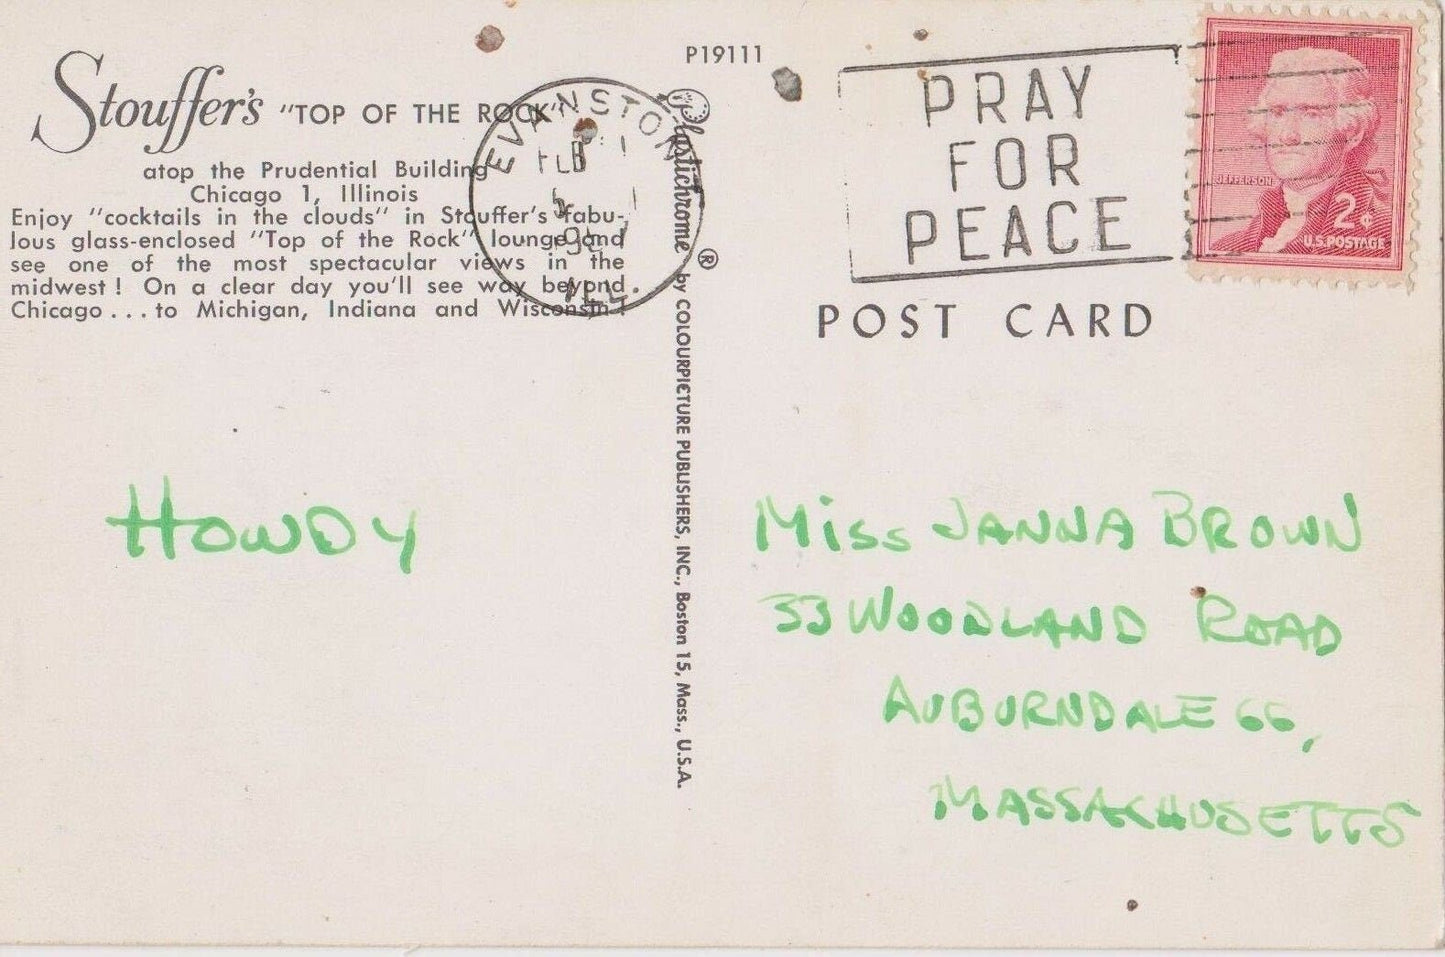 Stouffer's "TOP OF THE ROCK"
atop the Prudential Building
Chicago 1, Illinois
Enjoy "cocktails in the clouds" in Stouffer's fabu-
lous glass-enclosed "Top of the Rock" lounge and
see one of the most spectacular views in the
midwest! On a clear day you'll see way beyond
Chicago . . . to Michigan, Indiana and Wisconsin!
HOWDY
P19111
Plastichrome ® by COLOURPICTURE PUBLISHERS, INC., Boston 15, Mass., U.S.A.
EVANSTON
ILL.
PRAY
FOR
PEACE
JEFFERSON
2¢
U.S. POSTAGE
POST CARD
MISS JANNA BROWN
33 WOODLAND ROAD
AUBURNDALE 66,
MASSACHUSETTS